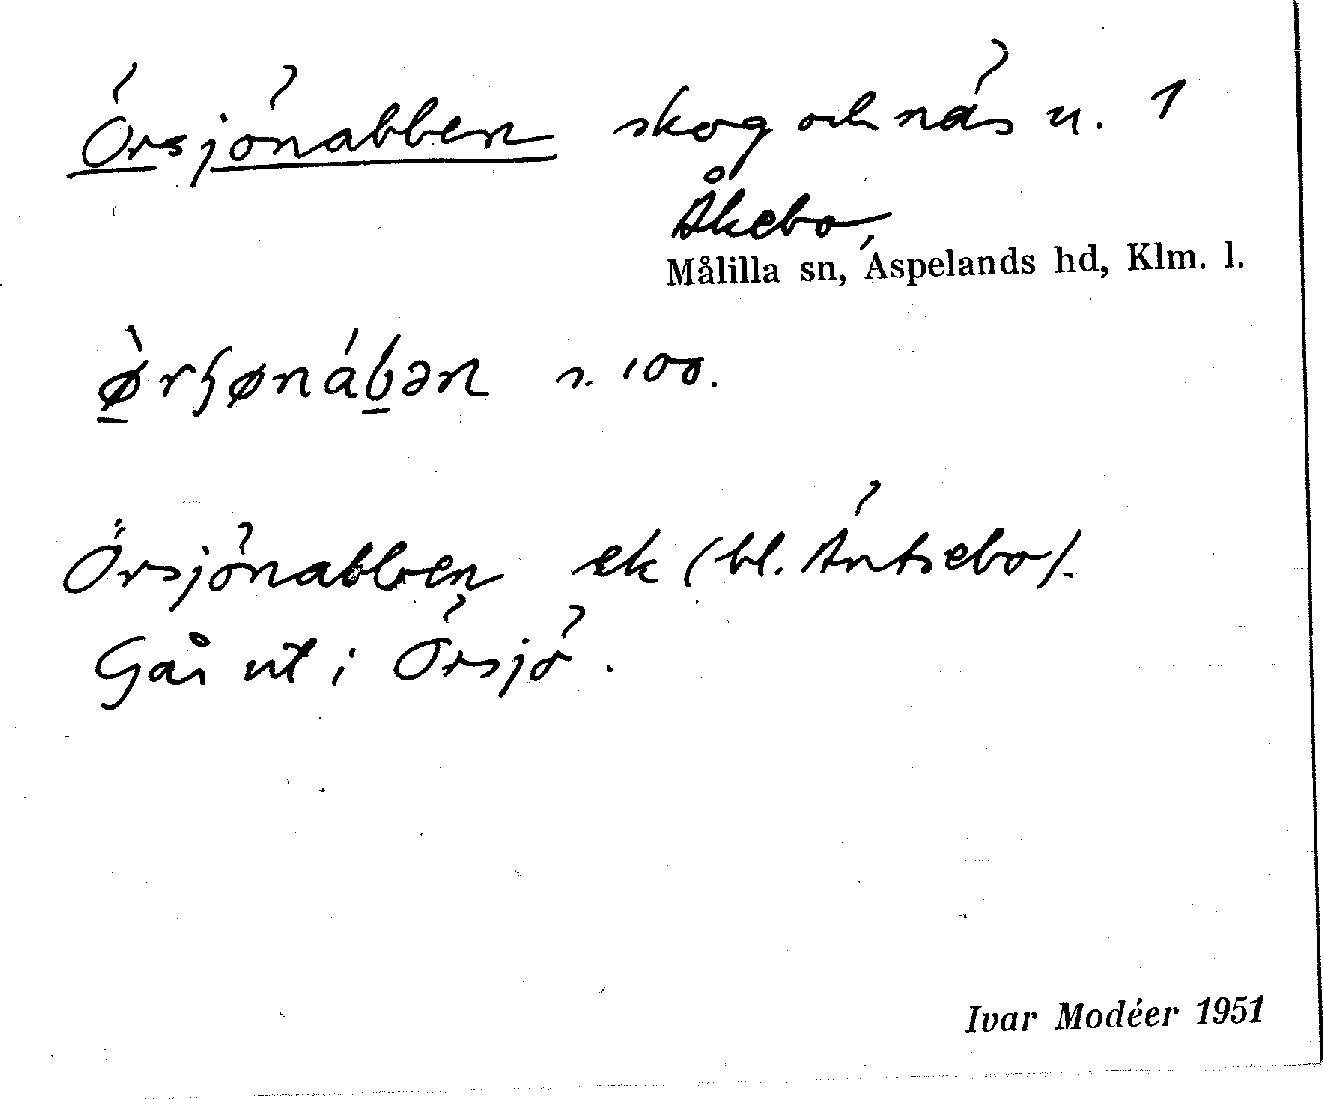 Örsjönabben skog och näs u. 1
Åkebo,
Målilla sn, Aspelands hd, Klm. l.
ø̀rʂønábən s. 100.
Örsjönabben ek (bl. Äntsebo).
Går ut i Örsjö.
Ivar Modéer 1951